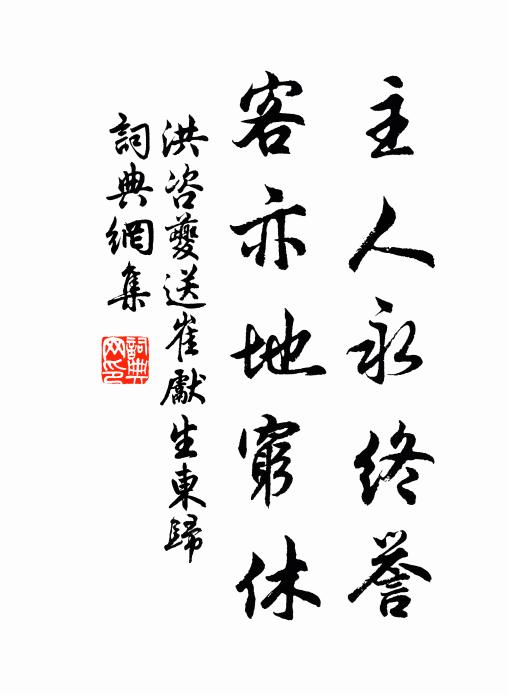 主人永終誉
客亦地窮休
洪咨夔送崔獻生東歸
詞典網集
詞典网印